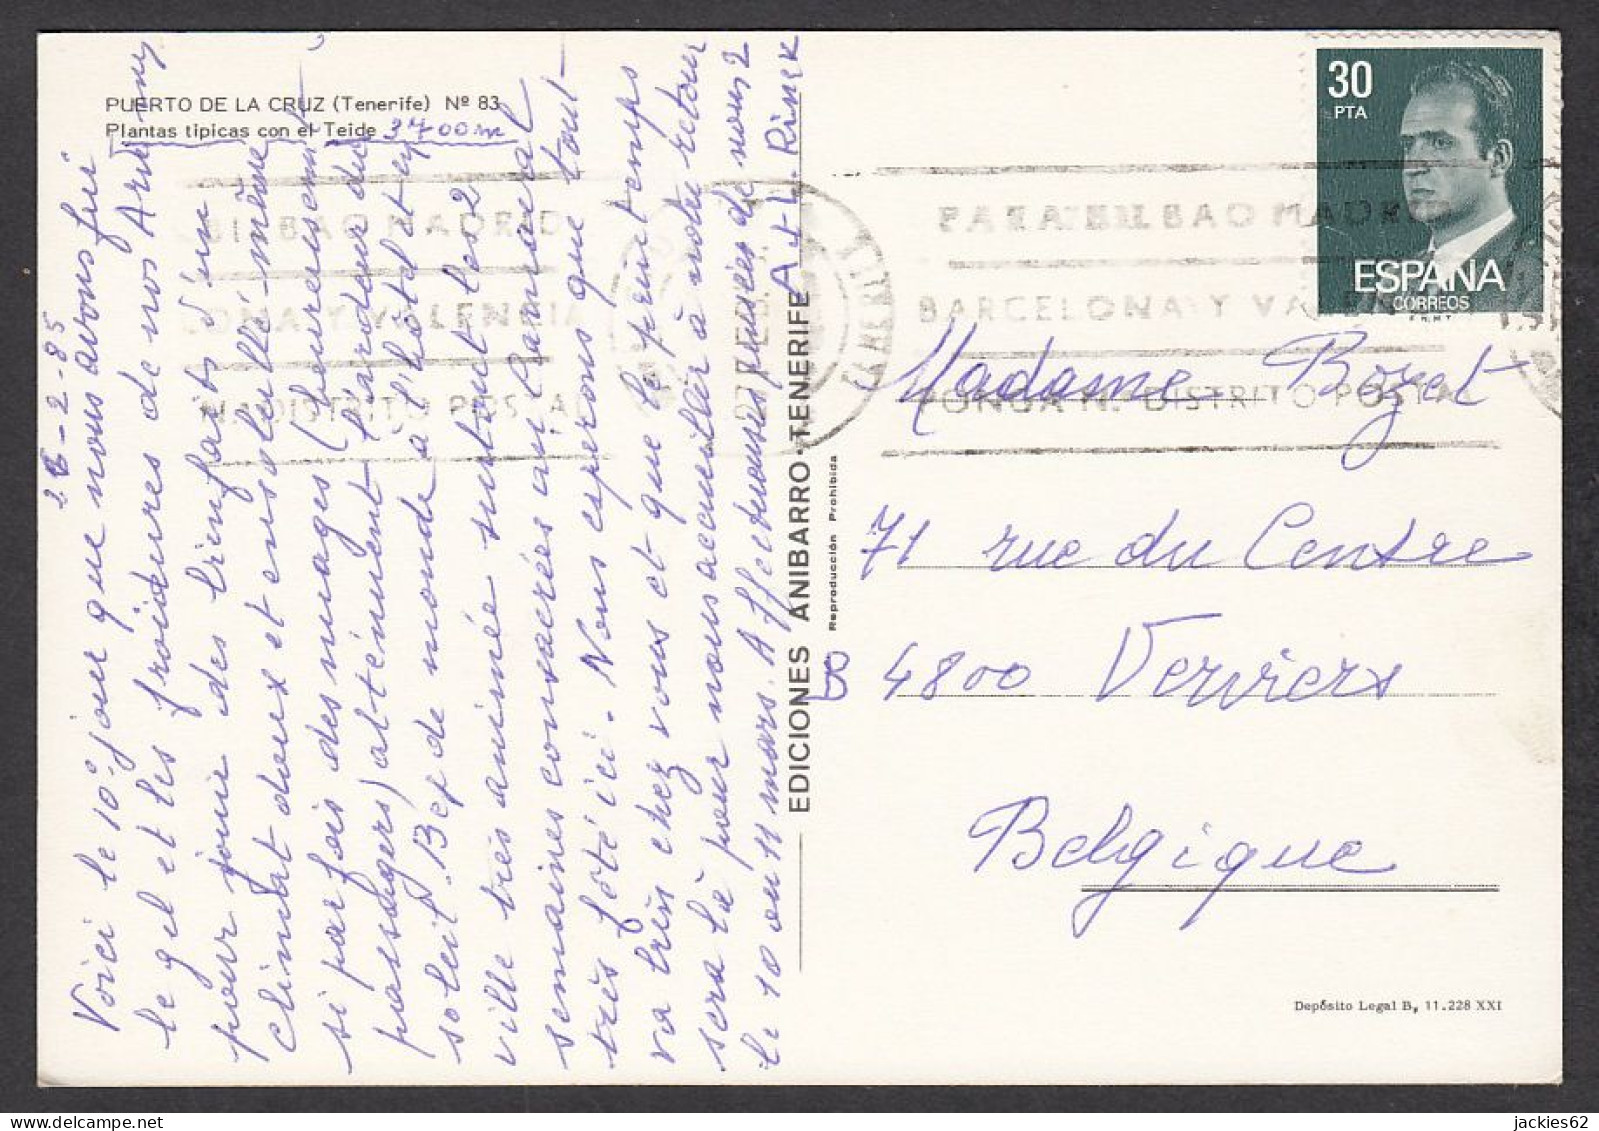 PUERTO DE LA CRUZ (Tenerife) Nº 83
Plantas tipicas con el Teide 3700m
26-2-85
Voici le 10e jour que nous avons fui
le gel et les froidures de nos
pour jouir des bienfaits d'un
climat doux et ensoleillé même
si parfois des nuages (heureusement
passagers) atténuent l'ardeur du
soleil. Bcp de monde à l'hôtel et en
ville très animée surtout les 2
semaines consacrées au Carnaval
très fêté ici. Nous espérons que tout
va bien chez vous et que le printemps
sera là pour nous accueillir à notre retour
le 10 ou 11 mars. Affectueuses pensées de nous 2
A + L. Rinck
EDICIONES ANIBARRO - TENERIFE
Reproducción Prohibida
30
PTA
ESPAÑA
CORREOS
F.N.M.T
BILBAO MADRID
LONA Y VALENCIA
DISTRITO POSTAL
27 FEB
TENERIFE
PARA BILBAO MADRID
BARCELONA Y VALEN
PONGA N.º DISTRITO POSTAL
Madame Bozet
71 rue du Centre
B 4800 Verviers
Belgique
Depósito Legal B, 11.228 XXI
jackies62